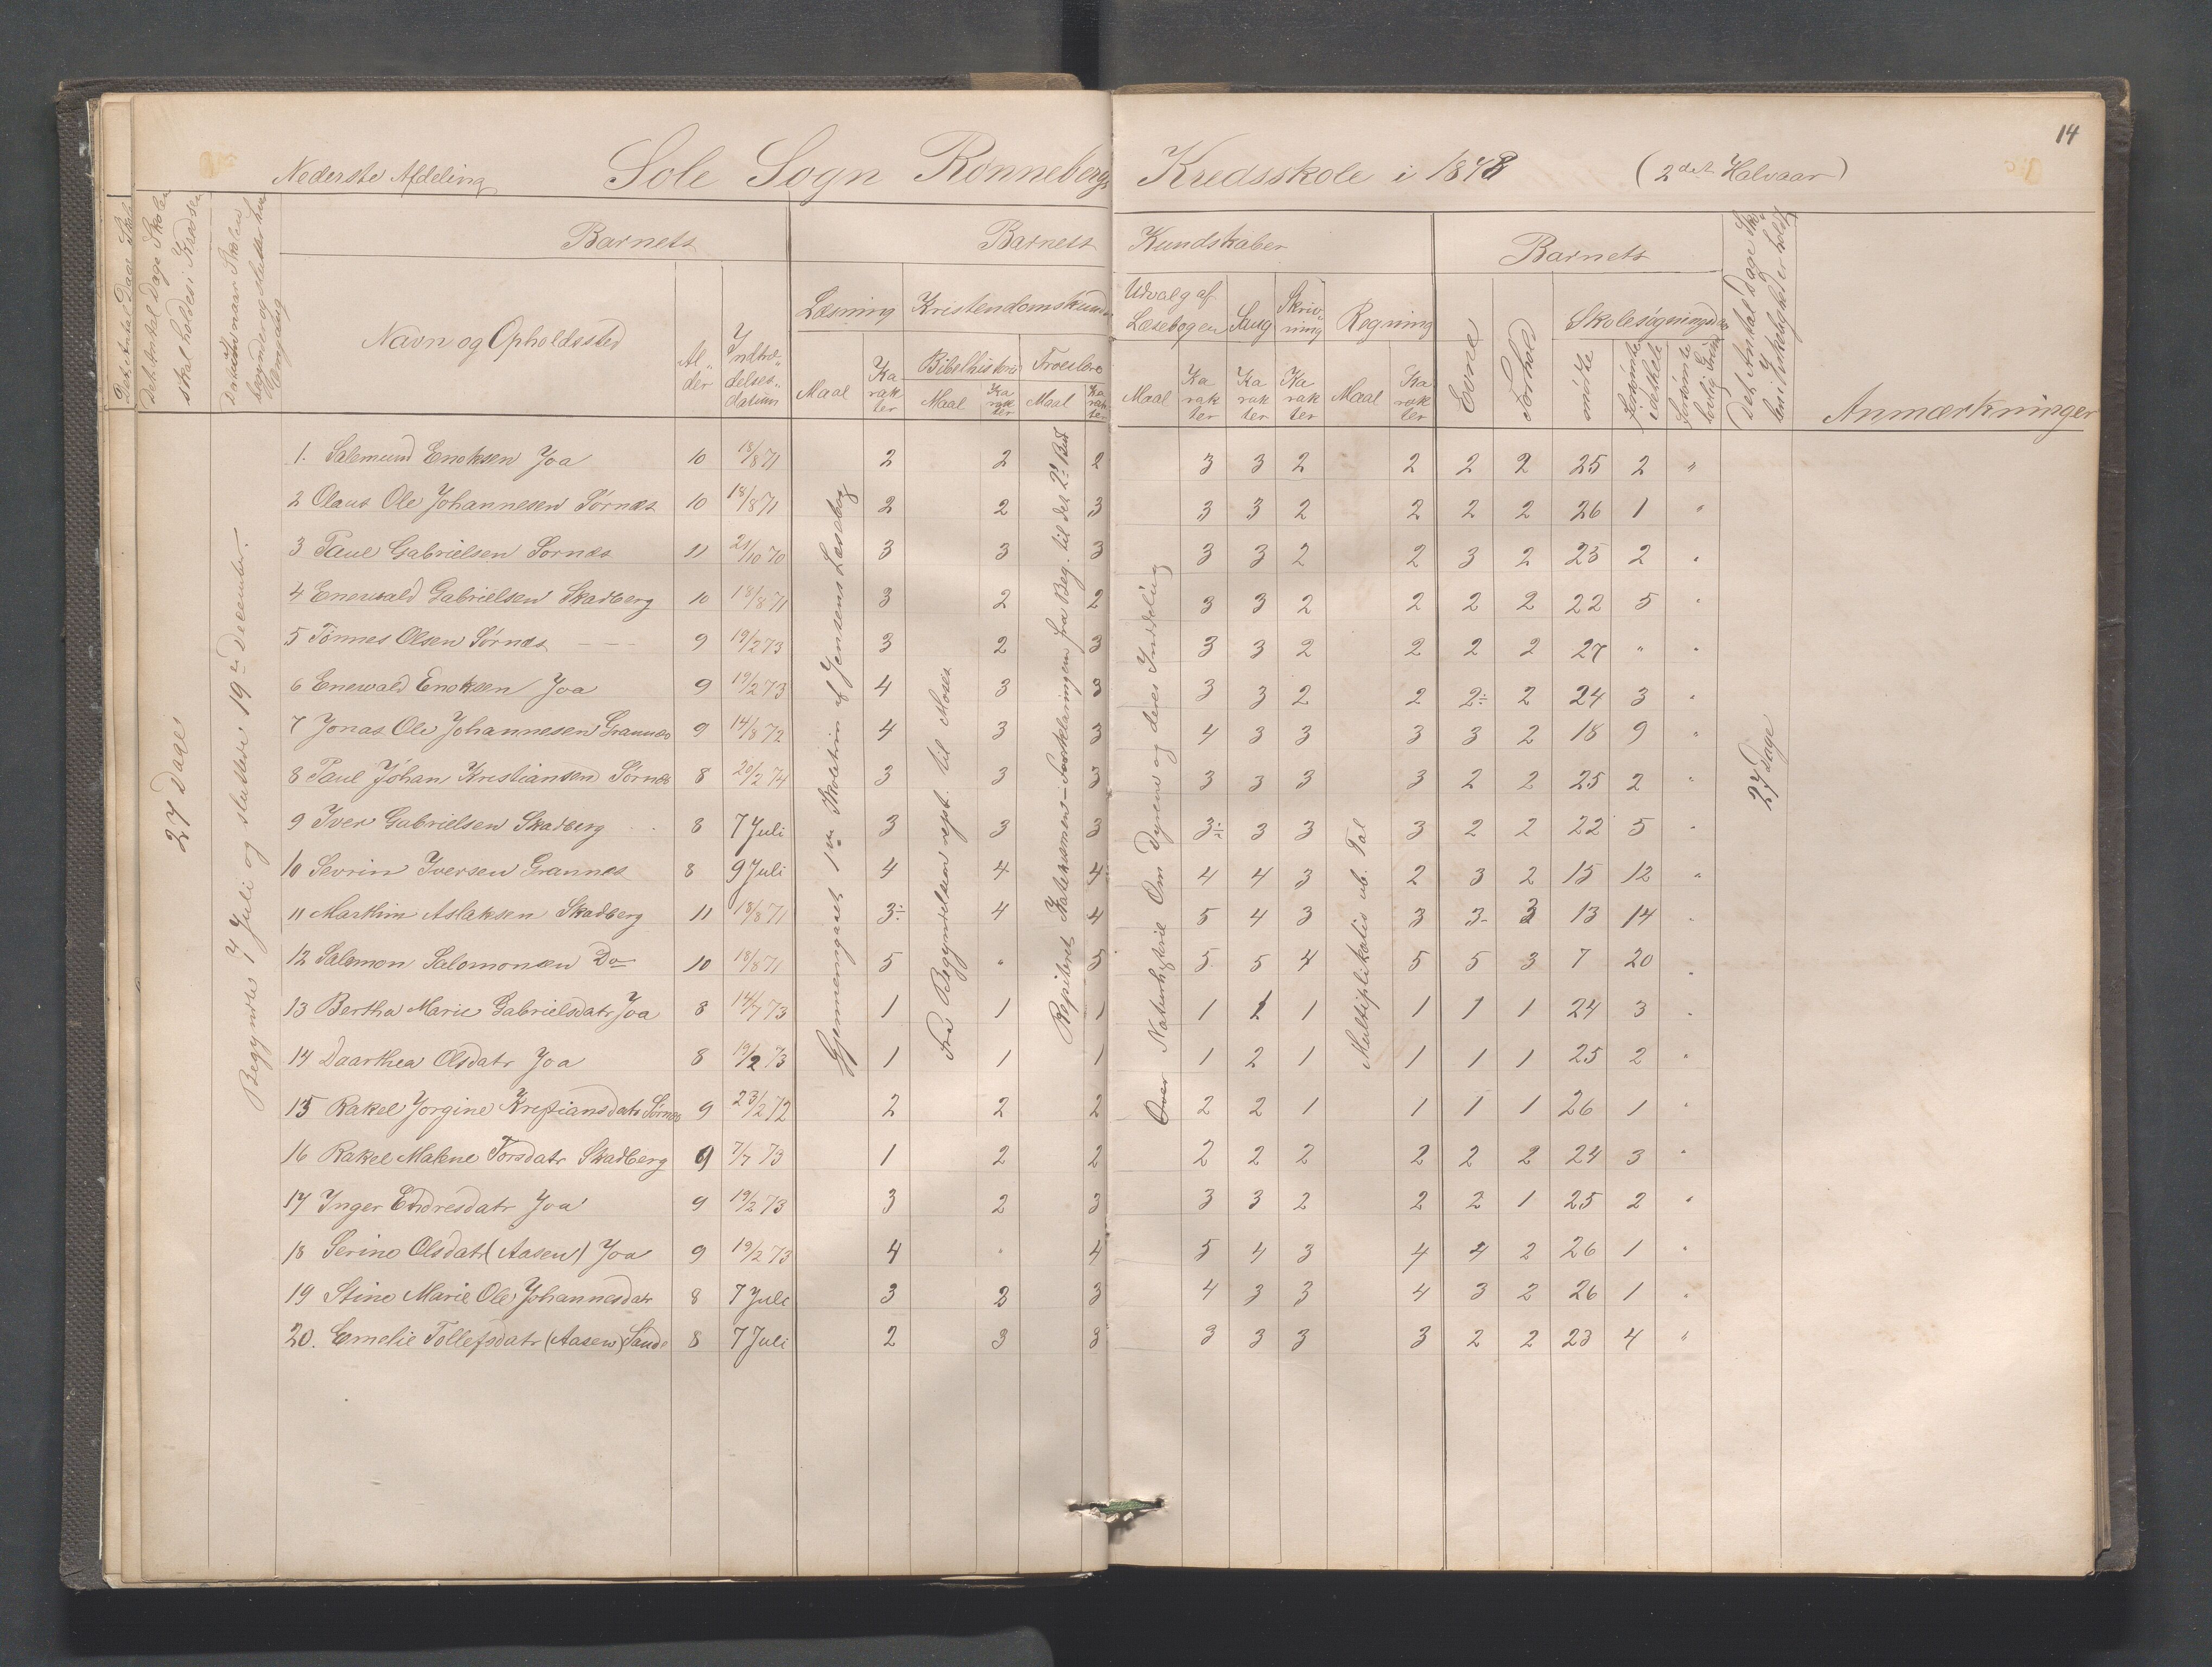 14
Nederste Afdeling Sole Sogn Rønnebergs Kredsskole i 1878 (2det Halvaar)
Det Antal Dage Skolen skal holdes i Kredsen
Datum naar Skolen begynder og slutter hver Omgang
Barnets
Navn og Opholdssted
Alder
Indtrædelsesdatum
Barnets Kundskaber
Læsning
Maal
Karakter
Kristendomskundskab
Bibelhistorie
Maal
Karakter
Troeslære
Maal
Karakter
Udvalg af Læsebogen
Maal
Karakter
Sang
Karakter
Skrivning
Karakter
Regning
Maal
Karakter
Barnets
Evne
Forhold
Skolesøgningsdage
mødte
forsømte i det hele
forsømte lovlig Grund
Det Antal Dage Skolen i Virkeligheden er holdt
Anmærkninger
27 Dage
Begyndtes 7 Juli og sluttede 19de December.
Gjennemgaaet 1ste Skoletrin af Jensens Læsebog
Fra Begyndelsen rept. til Moses
Repiteret Katekismen - Forklaringen fra Beg. til det 2det Bud
Over Naturhistorie Om Dyrene og deres Inddeling
Multiplikatio ub. Tal
27 Dage
1. Salemund Enoksen Joa 10 18/8 71 2 2 2 3 3 2 2 2 2 25 2 "
2 Olaus Ole Johannesen Sørnes 10 18/8 71 2 2 3 3 3 2 2 2 2 26 1 "
3 Paul Gabrielsen Sørnes 11 21/10 70 3 3 3 3 3 2 2 3 2 25 2 "
4 Enewald Gabrielsen Skadberg 10 18/8 71 3 2 2 3 3 2 2 2 2 22 5 "
5 Tønnes Olsen Sørnes 9 19/2 73 3 2 3 3 3 2 2 2 2 27 " "
6 Enewald Enoksen Joa 9 19/2 73 4 3 3 3 3 2 2 2÷ 2 24 3 "
7 Jonas Ole Johannesen Grannes 9 14/8 72 4 3 3 4 3 3 3 3 2 18 9 "
8 Paul Johan Kristiansen Sørnes 8 20/2 74 3 3 3 3 3 3 3 2 2 25 2 "
9 Iver Gabrielsen Skadberg 8 7 Juli 3 3 3 3÷ 3 3 3 2 2 22 5 "
10 Sevrin Iversen Grannes 8 9 Juli 4 4 4 4 4 3 2 3 2 15 12 "
11 Marthin Aslaksen Skadberg 11 18/8 71 3÷ 4 4 5 4 3 3 3- 3 13 14 "
12 Salomon Salomonsen Do 10 18/8 71 5 " 5 5 5 4 5 5 3 7 20 "
13 Bertha Marie Gabrielsdatr Joa 8 14/7 73 1 1 1 1 2 1 1 1 1 24 3 "
14 Daarthea Olsdatr Joa 8 19/2 73 1 1 1 1 2 1 1 1 1 25 2 "
15 Rakel Jorgine Kristiansdatr Sørnes 9 23/2 72 2 2 2 2 2 1 1 1 1 26 1 "
16 Rakel Malene Torsdatr Skadberg 9 7/7 73 1 2 2 2 2 2 2 2 2 24 3 "
17 Inger Endresdatr Joa 9 19/2 73 3 2 3 3 3 2 2 2 1 25 2 "
18 Serine Olsdatr (Aasen) Joa 9 19/2 73 4 " 4 5 4 3 4 4 2 26 1 "
19 Stine Marie Ole Johannesdatr 8 7 Juli 3 3 3 4 3 3 4 3 2 26 1 "
20. Emelie Tollefsdatr (Aasen) Sande 8 7 Juli 2 3 3 3 3 3 3 2 2 23 4 "